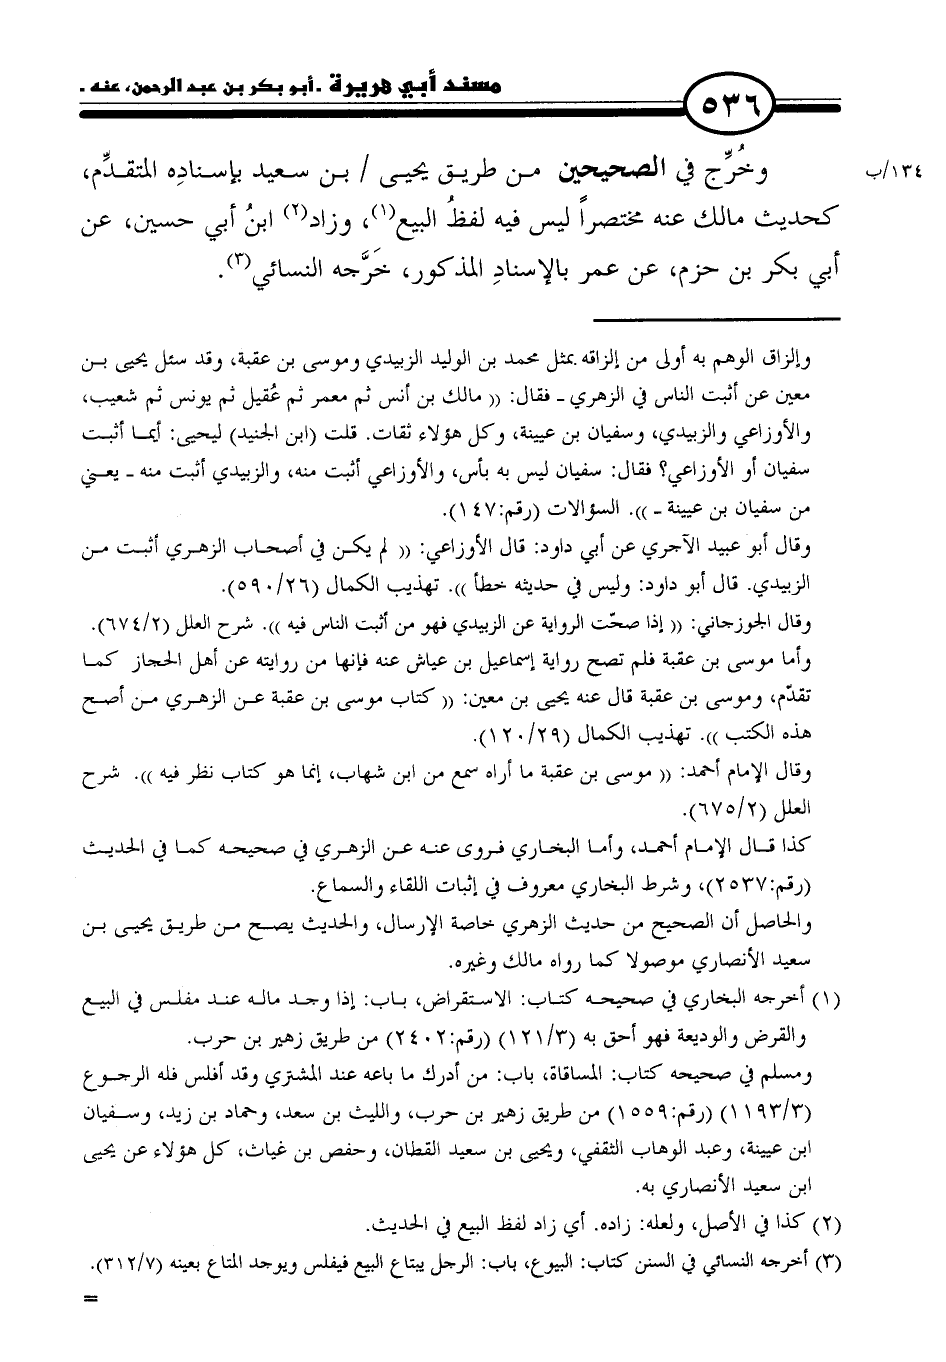 مسند أبي هريرة . أبو بكر بن عبد الرحمن، عنه . ٥٣٦
١٣٤/ب وخُرِّج في الصحيحين من طريق يحيى / بن سعيد بإسنادِه المتقدِّم،
كحديث مالك عنه مختصراً ليس فيه لفظُ البيع(١)، وزاد(٢) ابنُ أبي حسين، عن
أبي بكر بن حزم، عن عمر بالإسنادِ المذكور، خَرَّجه النسائي(٣).
وإلزاق الوهم به أولى من إلزاقه بمثل محمد بن الوليد الزبيدي وموسى بن عقبة، وقد سئل يحيى بن
معين عن أثبت الناس في الزهري ـ فقال: (( مالك بن أنس ثم معمر ثم عُقيل ثم يونس ثم شعيب،
والأوزاعي والزبيدي، وسفيان بن عيينة، وكل هؤلاء ثقات. قلت (ابن الجنيد) ليحيى: أيما أثبت
سفيان أو الأوزاعي؟ فقال: سفيان ليس به بأس، والأوزاعي أثبت منه، والزبيدي أثبت منه ـ يعني
من سفيان بن عيينة ـ )). السؤالات (رقم:١٤٧).
وقال أبو عبيد الآجري عن أبي داود: قال الأوزاعي: (( لم يكن في أصحاب الزهري أثبت من
الزبيدي. قال أبو داود: وليس في حديثه خطأ )). تهذيب الكمال (٥٩٠/٢٦).
وقال الجوزجاني: (( إذا صحّت الرواية عن الزبيدي فهو من أثبت الناس فيه )). شرح العلل (٦٧٤/٢).
وأما موسى بن عقبة فلم تصح رواية إسماعيل بن عياش عنه فإنها من روايته عن أهل الحجاز كما
تقدّم، وموسى بن عقبة قال عنه يحيى بن معين: (( كتاب موسى بن عقبة عن الزهري من أصح
هذه الكتب )). تهذيب الكمال (١٢٠/٢٩).
وقال الإمام أحمد: (( موسى بن عقبة ما أراه سمع من ابن شهاب، إنما هو كتاب نظر فيه )). شرح
العلل (٦٧٥/٢).
كذا قال الإمام أحمد، وأما البخاري فروى عنه عن الزهري في صحيحه كما في الحديث
(رقم:٢٥٣٧)، وشرط البخاري معروف في إثبات اللقاء والسماع.
والحاصل أن الصحيح من حديث الزهري خاصة الإرسال، والحديث يصح من طريق يحيى بن
سعيد الأنصاري موصولا كما رواه مالك وغيره.
(١) أخرجه البخاري في صحيحه كتاب: الاستقراض، باب: إذا وجد ماله عند مفلس في البيع
والقرض والوديعة فهو أحق به (١٢١/٣) (رقم:٢٤٠٢) من طريق زهير بن حرب.
ومسلم في صحيحه كتاب: المساقاة، باب: من أدرك ما باعه عند المشتري وقد أفلس فله الرجوع
(١١٩٣/٣) (رقم:١٥٥٩) من طريق زهير بن حرب، والليث بن سعد، وحماد بن زيد، وسفيان
ابن عيينة، وعبد الوهاب الثقفي، ويحيى بن سعيد القطان، وحفص بن غياث، كل هؤلاء عن يحيى
ابن سعيد الأنصاري به.
(٢) كذا في الأصل، ولعله: زاده. أي زاد لفظ البيع في الحديث.
(٣) أخرجه النسائي في السنن كتاب: البيوع، باب: الرجل يبتاع البيع فيفلس ويوجد المتاع بعينه (٣١٢/٧).
=